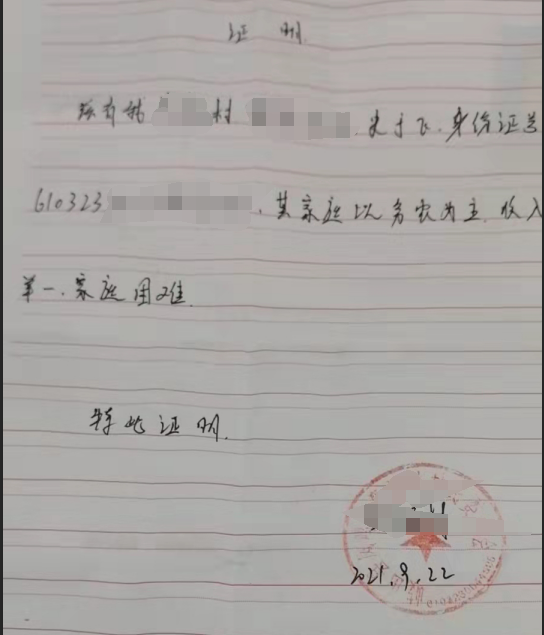 证明
兹有我 村 史于飞.身份证号
610323 ,其家庭以务农为主,收入
单一.家庭困难.
特此证明.
2021.9.22